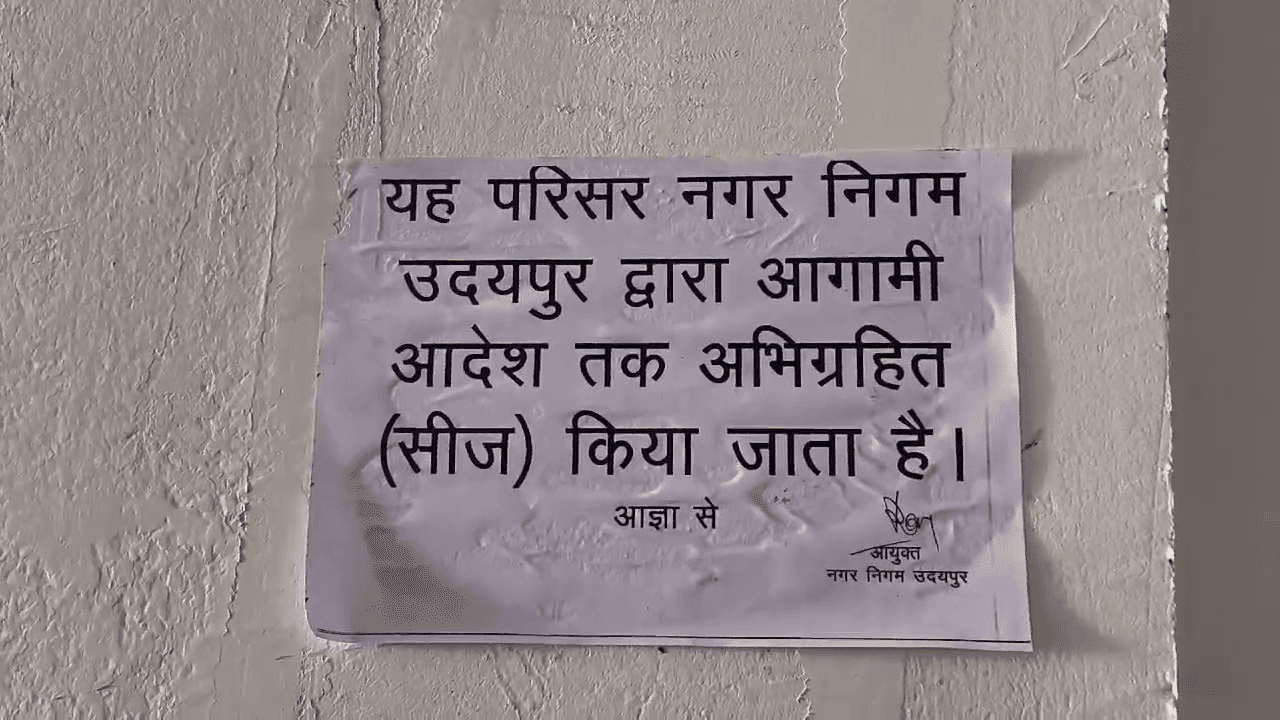 यह परिसर नगर निगम
उदयपुर द्वारा आगामी
आदेश तक अभिग्रहित
(सीज) किया जाता है।
आज्ञा से
आयुक्त
नगर निगम उदयपुर